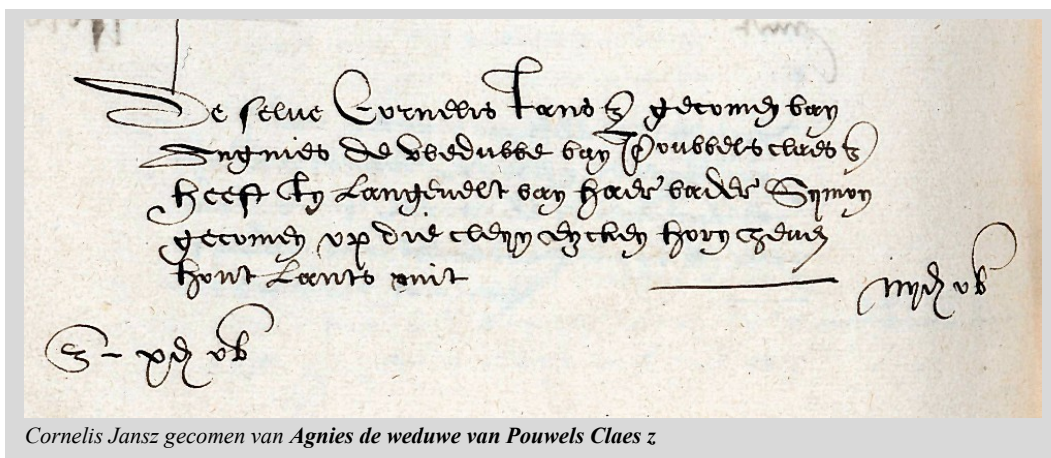 De selve Cornelis Jans z gecomen van
Angnies de wedwwe van Pouwels claes z
heeft in Langevelt van haer vader Symon
gecomen up die cleyn eycken horn zeven
hont Lants mit
iiij d vb
S – x d vb
Cornelis Jansz gecomen van Agnies de weduwe van Pouwels Claes z